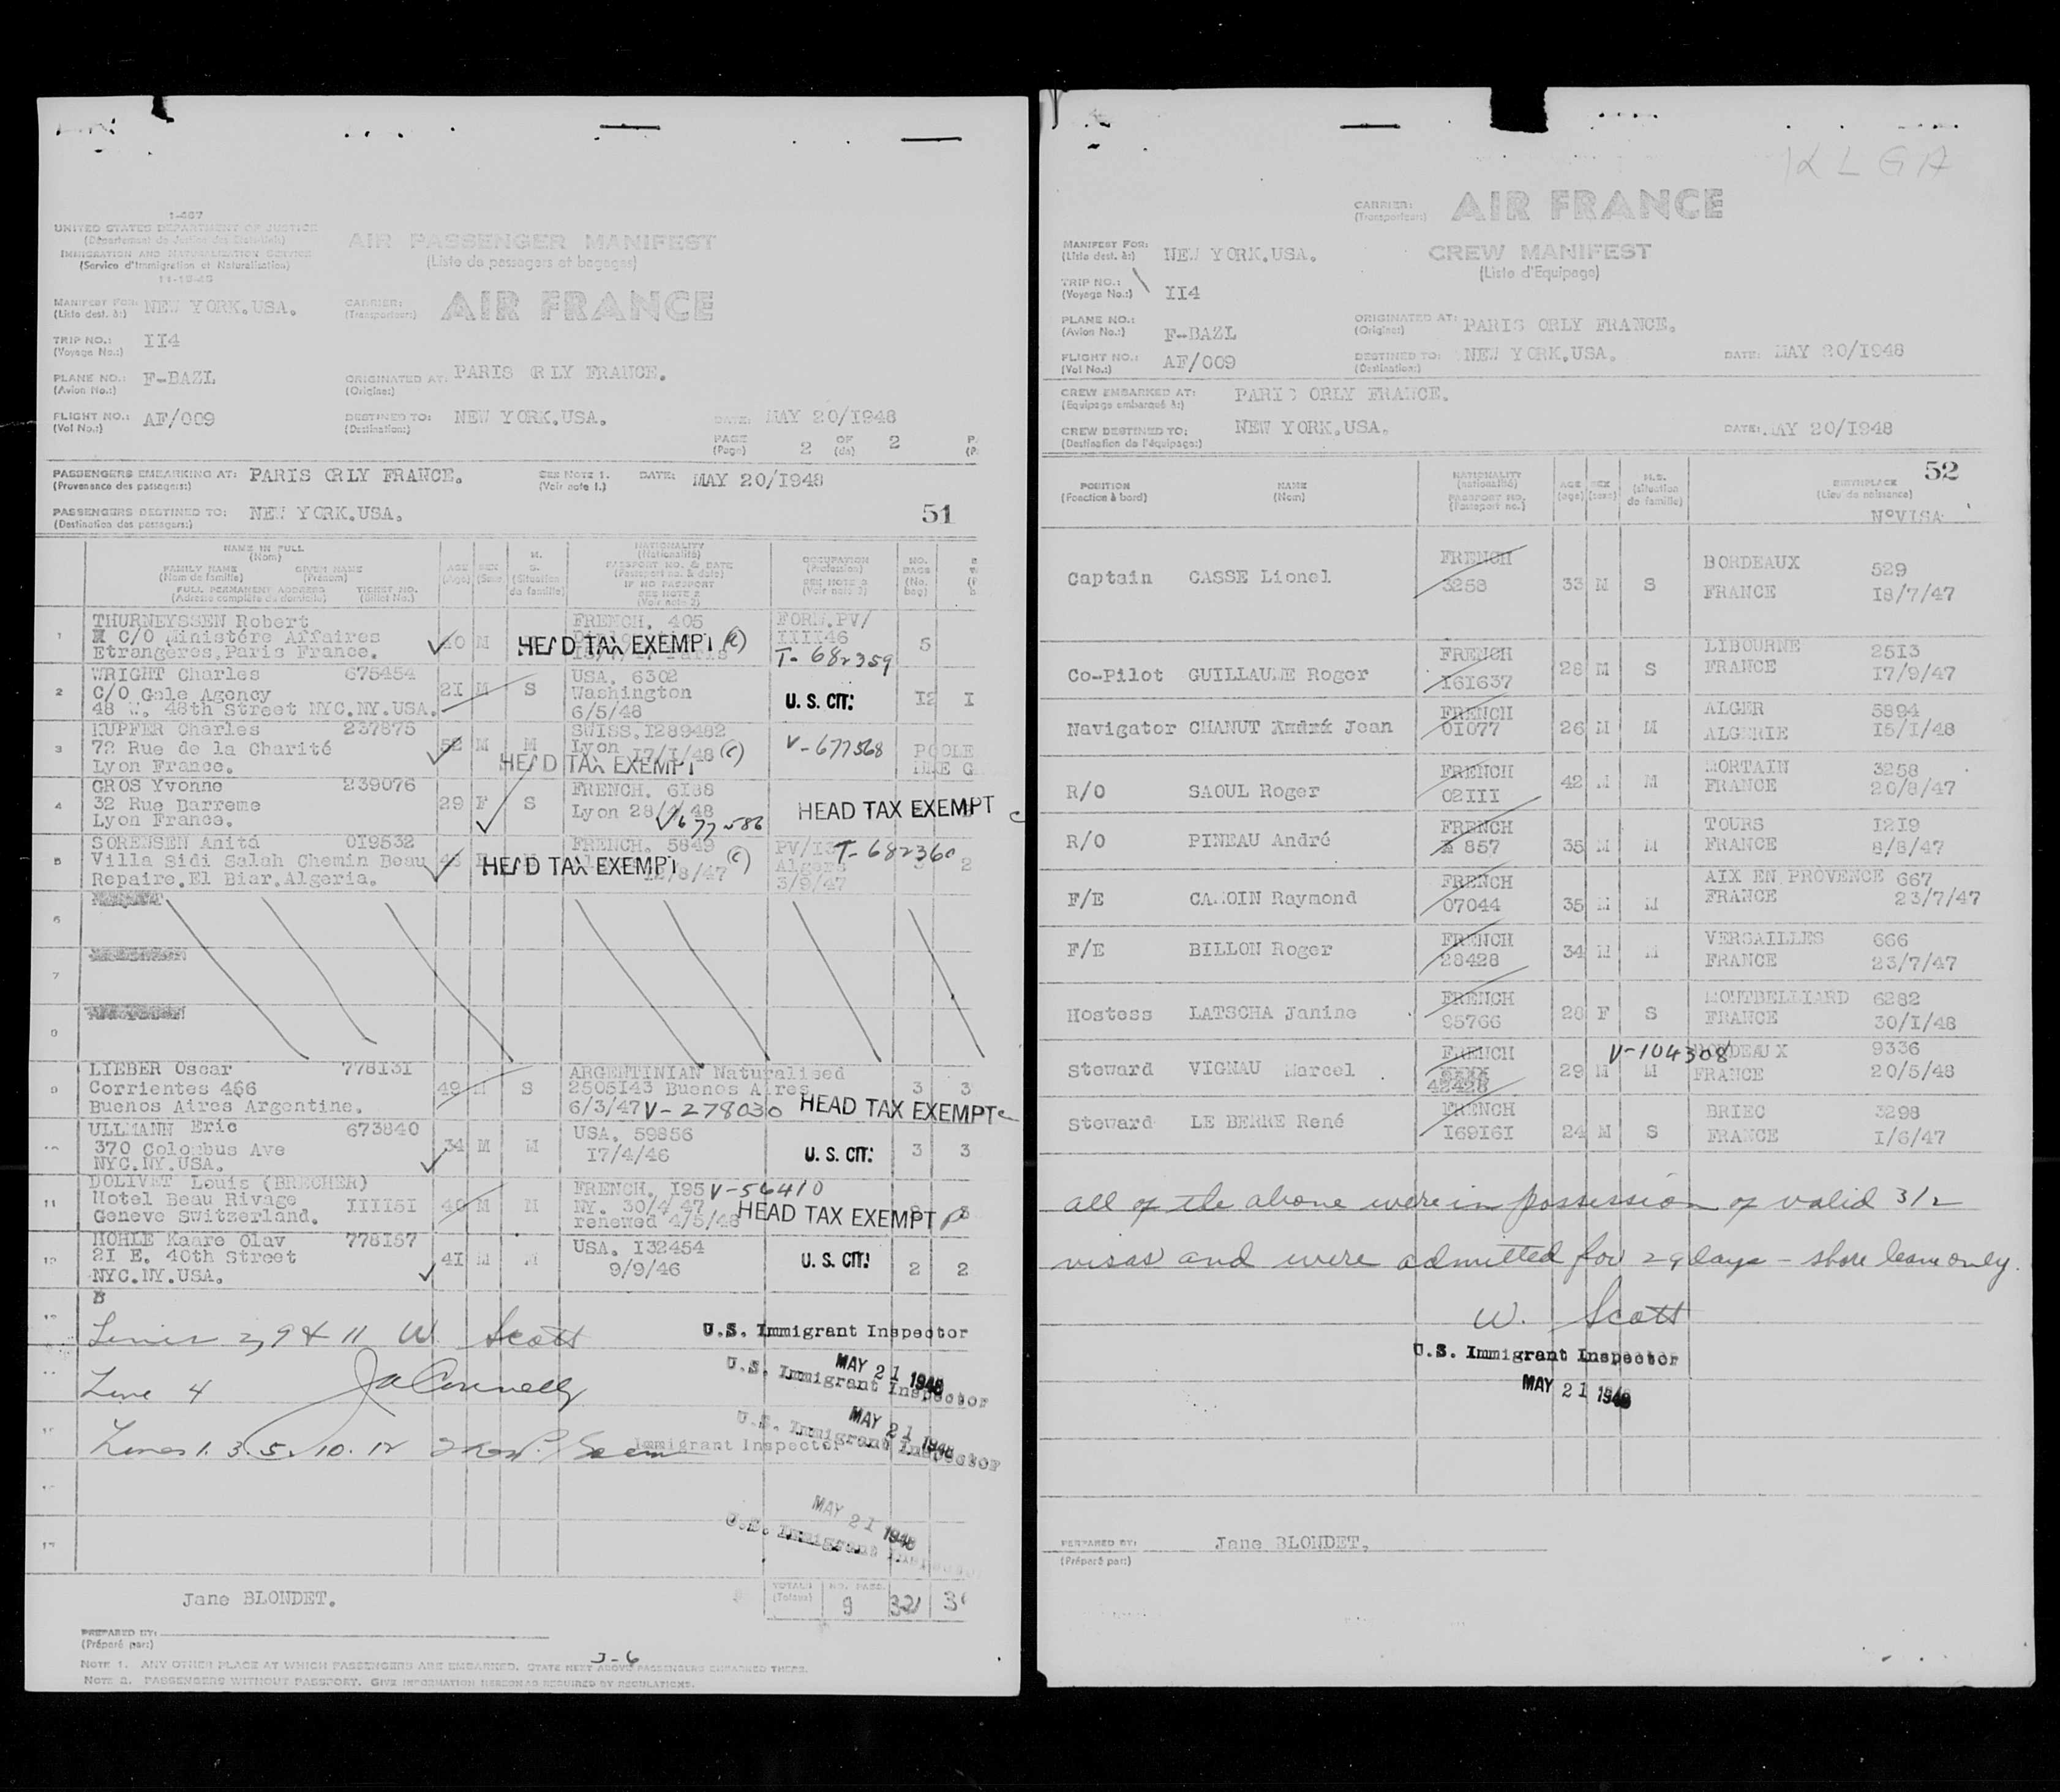 1-467
UNITED STATES DEPARTMENT OF JUSTICE
(Département de Justice des Etats-Unis)
IMMIGRATION AND NATURALIZATION SERVICE
(Service d'Immigration et Naturalisation)
11-15-45
AIR PASSENGER MANIFEST
(Liste de passagers et bagages)
MANIFEST FOR: NEW YORK.USA.
(Liste dest. à:)
CARRIER: AIR FRANCE
(Transporteur:)
TRIP NO.: II4
(Voyage No.:)
PLANE NO.: F-BAZL
(Avion No.:)
ORIGINATED AT: PARIS ORLY FRANCE.
(Origine:)
FLIGHT NO.: AF/009
(Vol No.:)
DESTINED TO: NEW YORK.USA.
(Destination:)
DATE: MAY 20/I948
PAGE 2 OF 2
(Page) (de)
PASSENGERS EMBARKING AT: PARIS ORLY FRANCE.
(Provenance des passagers:)
SEE NOTE 1. DATE: MAY 20/I948
(Voir note 1.)
PASSENGERS DESTINED TO: NEW YORK.USA.
(Destination des passagers:)
51
NAME IN FULL
(Nom)
FAMILY NAME GIVEN NAME
(Nom de famille) (Prénom)
FULL PERMANENT ADDRESS TICKET NO.
(Adresse complète du domicile) (Billet No.)
AGE
(Age)
SEX
(Sexe)
M.
S.
(Situation
de famille)
NATIONALITY
(Nationalité)
PASSPORT NO. & DATE
(Passeport no. & date)
IF NO PASSPORT
SEE NOTE 2
(Voir note 2)
OCCUPATION
(Profession)
SEE NOTE 2
(Voir note 2)
NO.
BAGS
(No.
bag)
1
THURNEYSSEN Robert
C/O Ministére Affaires
Etrangeres,Paris France.
40 M
FRENCH. 405
HEAD TAX EXEMPT (c)
FORN.PV/
IIII46
T-682359
5
2
WRIGHT Charles 675454
C/O Gale Agency
48 W. 48th Street NYC.NY.USA.
2I M S
USA. 6302
Washington
6/5/48
U. S. CIT.
I2 I
3
KUPFER Charles 237875
72 Rue de la Charité
Lyon France.
52 M M
SWISS.I289482
Lyon I7/I/48 (c)
HEAD TAX EXEMPT
V-677568
POOLE
4
GROS Yvonne 239076
32 Rue Barreme
Lyon France.
29 F S
FRENCH. 6I88
Lyon 28/4/48
V677586
HEAD TAX EXEMPT c
5
SORENSEN Anitá 0I9532
Villa Sidi Salah Chemin Beau
Repaire.El Biar.Algeria.
FRENCH. 5849
HEAD TAX EXEMPT (c)
T-682360
Algers
3/9/47
2
6
7
8
9
LIEBER Oscar 778I3I
Corrientes 466
Buenos Aires Argentine.
49 M S
ARGENTINIAN Naturalised
2505I43 Buenos Aires
6/3/47 V-278030
HEAD TAX EXEMPT c
3 3
10
ULLMANN Eric 673840
370 Colombus Ave
NYC.NY.USA.
34 M M
USA. 59856
I7/4/46
U. S. CIT.
3 3
11
DOLIVET Louis (BRECHER)
Hotel Beau Rivage
Geneve Switzerland. IIII5I
40 M M
FRENCH. I95 V-56410
NY. 30/4/47
renewed 4/5/48
HEAD TAX EXEMPT
12
HOHLE Kaare Olav 778I57
2I E. 40th Street
NYC.NY.USA.
4I M M
USA. I32454
9/9/46
U. S. CIT.
2 2
Lines 2, 9 & 11 W. Scott
U.S. Immigrant Inspector
MAY 21 1948
Line 4 JA Connelly
U.S. Immigrant Inspector
MAY 21 1948
Lines 1. 3. 5. 10. 12
Immigrant Inspector
U.S. Immigrant Inspector
MAY 21 1948
U.S. Immigrant Inspector
Jane BLONDET.
TOTALS
(Totaux)
NO. PASS.
9 32
PREPARED BY:
(Préparé par:)
J-6
NOTE 1. ANY OTHER PLACE AT WHICH PASSENGERS ARE EMBARKED. STATE NEXT ABOVE PASSENGERS EMBARKED THERE.
NOTE 2. PASSENGERS WITHOUT PASSPORT. GIVE INFORMATION HEREON AS REQUIRED BY REGULATIONS.
KLGA
CARRIER: AIR FRANCE
(Transporteur:)
CREW MANIFEST
(Liste d'Equipage)
MANIFEST FOR: NEW YORK.USA.
(Liste dest. à:)
TRIP NO.: II4
(Voyage No.:)
PLANE NO.: F-BAZL
(Avion No.:)
ORIGINATED AT: PARIS ORLY FRANCE.
(Origine:)
FLIGHT NO.: AF/009
(Vol No.:)
DESTINED TO: NEW YORK.USA.
(Destination:)
DATE: MAY 20/I948
CREW EMBARKED AT: PARIS ORLY FRANCE.
(Equipage embarqué à:)
CREW DESTINED TO: NEW YORK.USA.
(Destination de l'équipage:)
DATE: MAY 20/I948
52
POSITION
(Fonction à bord)
NAME
(Nom)
NATIONALITY
(nationalité)
PASSPORT NO.
(Passeport no.)
AGE
(age)
SEX
(sexe)
M.S.
(situation
de famille)
BIRTHPLACE
(Lieu de naissance)
N°VISA
Captain CASSE Lionel FRENCH 3258 33 M S BORDEAUX FRANCE 529 I8/7/47
Co-Pilot GUILLAUME Roger FRENCH I6I637 28 M S LIBOURNE FRANCE 25I3 I7/9/47
Navigator CHANUT André Jean FRENCH 0I077 26 M M ALGER ALGERIE 5894 I5/I/48
R/O SAOUL Roger FRENCH 02III 42 M M MORTAIN FRANCE 3258 20/8/47
R/O PINEAU André FRENCH 857 35 M M TOURS FRANCE I2I9 8/8/47
F/E CAMOIN Raymond FRENCH 07044 35 M M AIX EN PROVENCE FRANCE 667 23/7/47
F/E BILLON Roger FRENCH 28428 34 M M VERSAILLES FRANCE 666 23/7/47
Hostess LATSCHA Janine FRENCH 95766 28 F S MONTBELLIARD FRANCE 6282 30/I/48
Steward VIGNAU Marcel FRENCH 42428 29 M M V-104308 BORDEAUX FRANCE 9336 20/5/48
Steward LE BERRE René FRENCH I69I6I 24 M S BRIEC FRANCE 3298 I/6/47
all of the above were in possession of valid 3/2
visas and were admitted for 29 days - shore leave only.
W. Scott
U.S. Immigrant Inspector
MAY 21 1948
PREPARED BY: Jane BLONDET.
(Préparé par:)